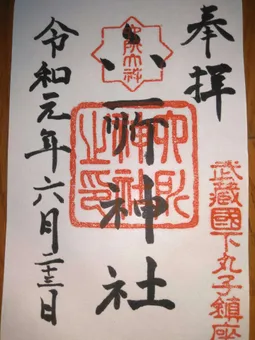 奉拝
武藏國下丸子鎮座
六所神社
六所
神社
之印
令和元年六月二十三日